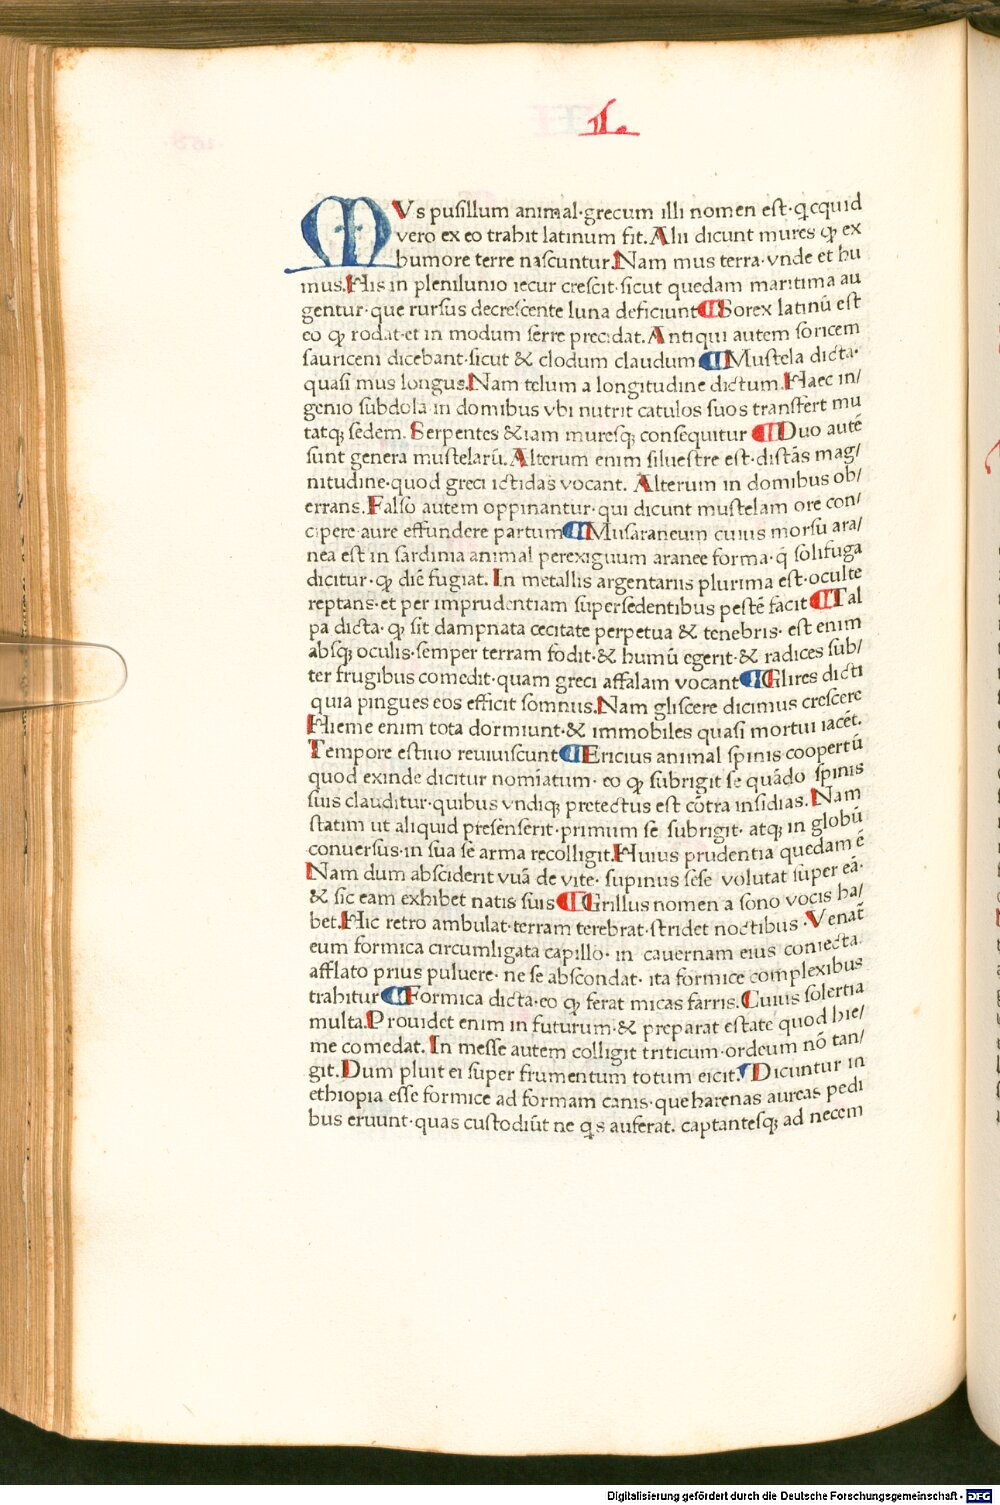 I.
MVs pusillum animal·grecum illi nomen est·q̄cquid
vero ex eo trahit latinum fit. Alii dicunt mures ꝙ ex
humore terre nascuntur. Nam mus terra·vnde et hu
mus. His in plenilunio iecur crescit·sicut quedam maritima au
gentur·que rursus decrescente luna deficiunt ¶ Sorex latinū est
eo ꝙ rodat·et in modum serre precidat. Antiqui autem soricem
sauricem dicebant·sicut & clodum claudum ¶ Mustela dicta·
quasi mus longus. Nam telum a longitudine dictum. Haec in/
genio subdola in domibus vbi nutrit catulos suos transfert mu
tatq; sedem. Serpentes &iam muresq; consequitur ¶ Duo autē
sunt genera mustelarū. Alterum enim siluestre est·distās mag/
nitudine·quod greci ictidas vocant. Alterum in domibus ob/
errans. Falso autem oppinantur·qui dicunt mustelam ore con/
cipere·aure effundere partum ¶ Musaraneum cuius morsu ara/
nea est in sardinia animal perexiguum aranee forma·q̄ solifuga
dicitur·ꝙ diē fugiat. In metallis argentariis plurima est·occulte
reptans·et per imprudentiam supersedentibus pestē facit ¶ Tal
pa dicta·ꝙ sit dampnata cecitate perpetua & tenebris· est enim
absq; oculis·semper terram fodit·& humū egerit·& radices sub/
ter frugibus comedit·quam greci affalam vocant ¶ Glires dicti
quia pingues eos efficit somnus. Nam gliscere dicimus crescere
Hieme enim tota dormiunt·& immobiles quasi mortui iacēt.
Tempore estiuo reuiuiscunt ¶ Ericius animal spinis coopertū
quod exinde dicitur nomīatum· eo ꝙ subrigit se quādo spinis
suis clauditur·quibus vndiq; protectus est cōtra insidias. Nam
statim ut aliquid presenserit·primum se subrigit· atq; in globū
conuersus·in sua se arma recolligit. Huius prudentia quedam ē
Nam dum absciderit vuā de vite· supinus sese volutat super eā·
& sic eam exhibet natis suis ¶ Grillus nomen a sono vocis ha/
bet. Hic retro ambulat·terram terebrat·stridet noctibus· Venat̄
eum formica circumligata capillo· in cauernam eius coniecta·
afflato prius puluere· ne se abscondat· ita formice complexibus
trahitur ¶ Formica dicta·eo ꝙ ferat micas farris. Cuius solertia
multa. Prouidet enim in futurum·& preparat estate quod hie/
me comedat. In messe autem colligit triticum·ordeum nō tan/
git. Dum pluit ei super frumentum totum eicit. ¶ Dicuntur in
ethiopia esse formice ad formam canis·que harenas aureas pedi
bus eruunt·quas custodiūt ne q̄s auferat. captantesq; ad necem
Digitalisierung gefördert durch die Deutsche Forschungsgemeinschaft - DFG